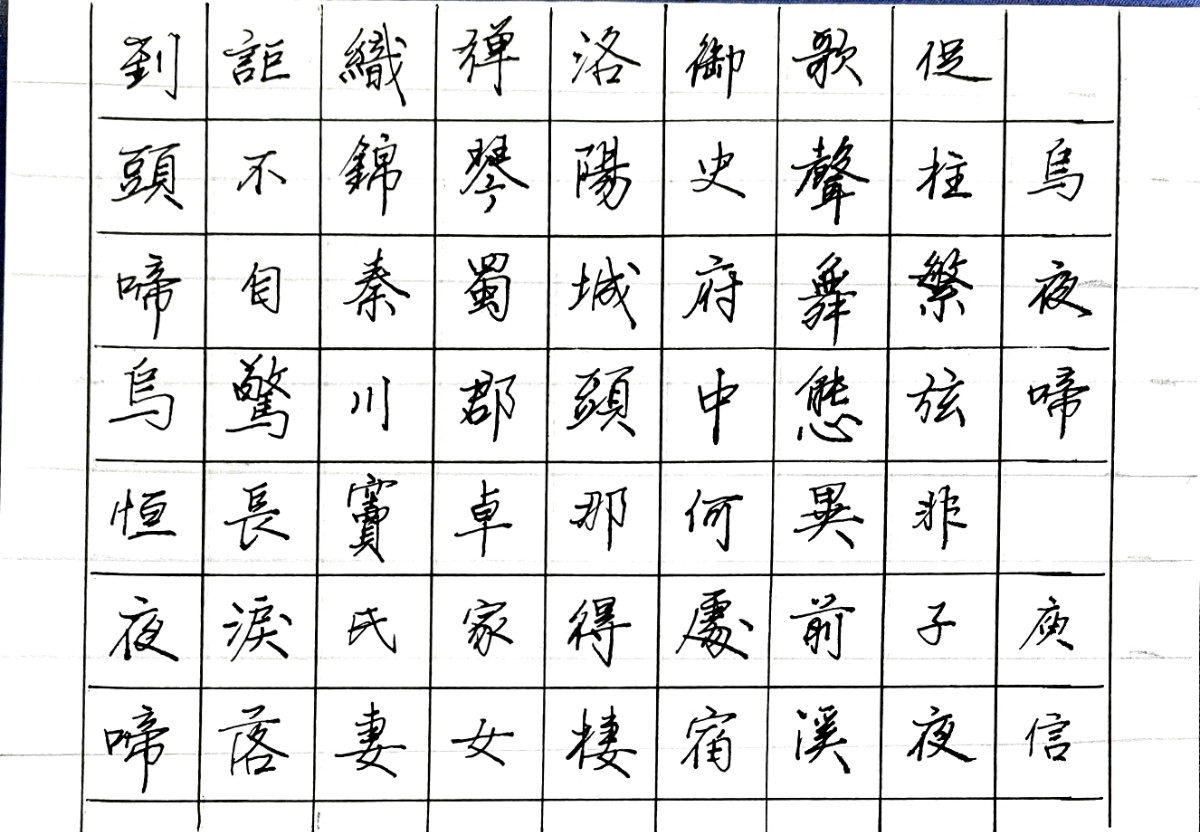 烏夜啼 庾信
促柱繁弦非子夜
歌聲舞態異前溪
御史府中何處宿
洛陽城頭那得棲
禪琴蜀郡卓家女
織錦秦川竇氏妻
詎不自驚長淚落
到頭啼烏恒夜啼